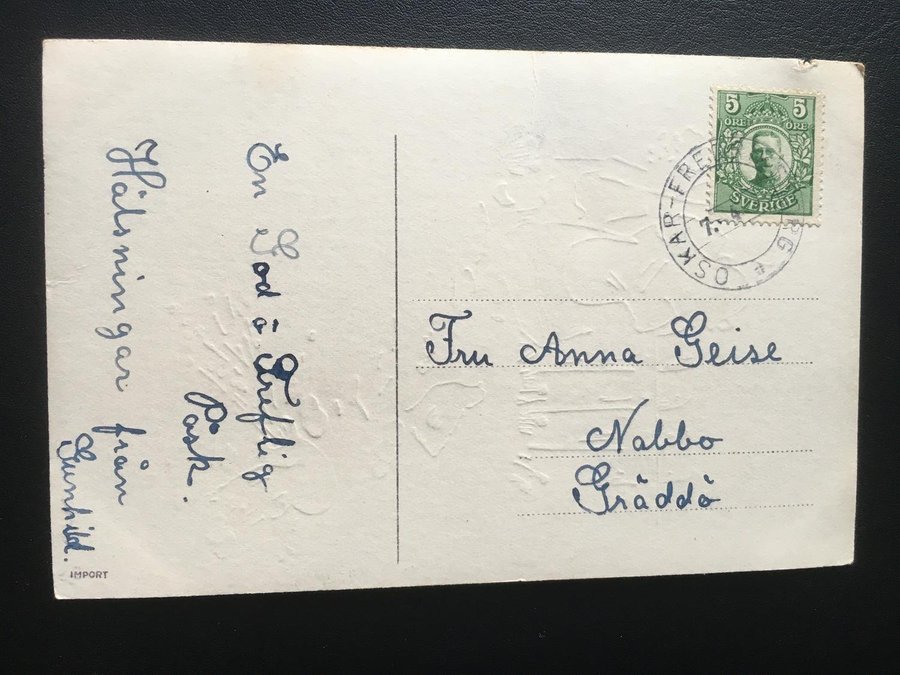 En God å Treflig
Påsk.
Hälsningar från
Gunhild.
IMPORT
5 5
ÖRE ÖRE
SVERIGE
OSKAR-FRE
RG
7.
Fru Anna Geise
Nabbo
Gräddö